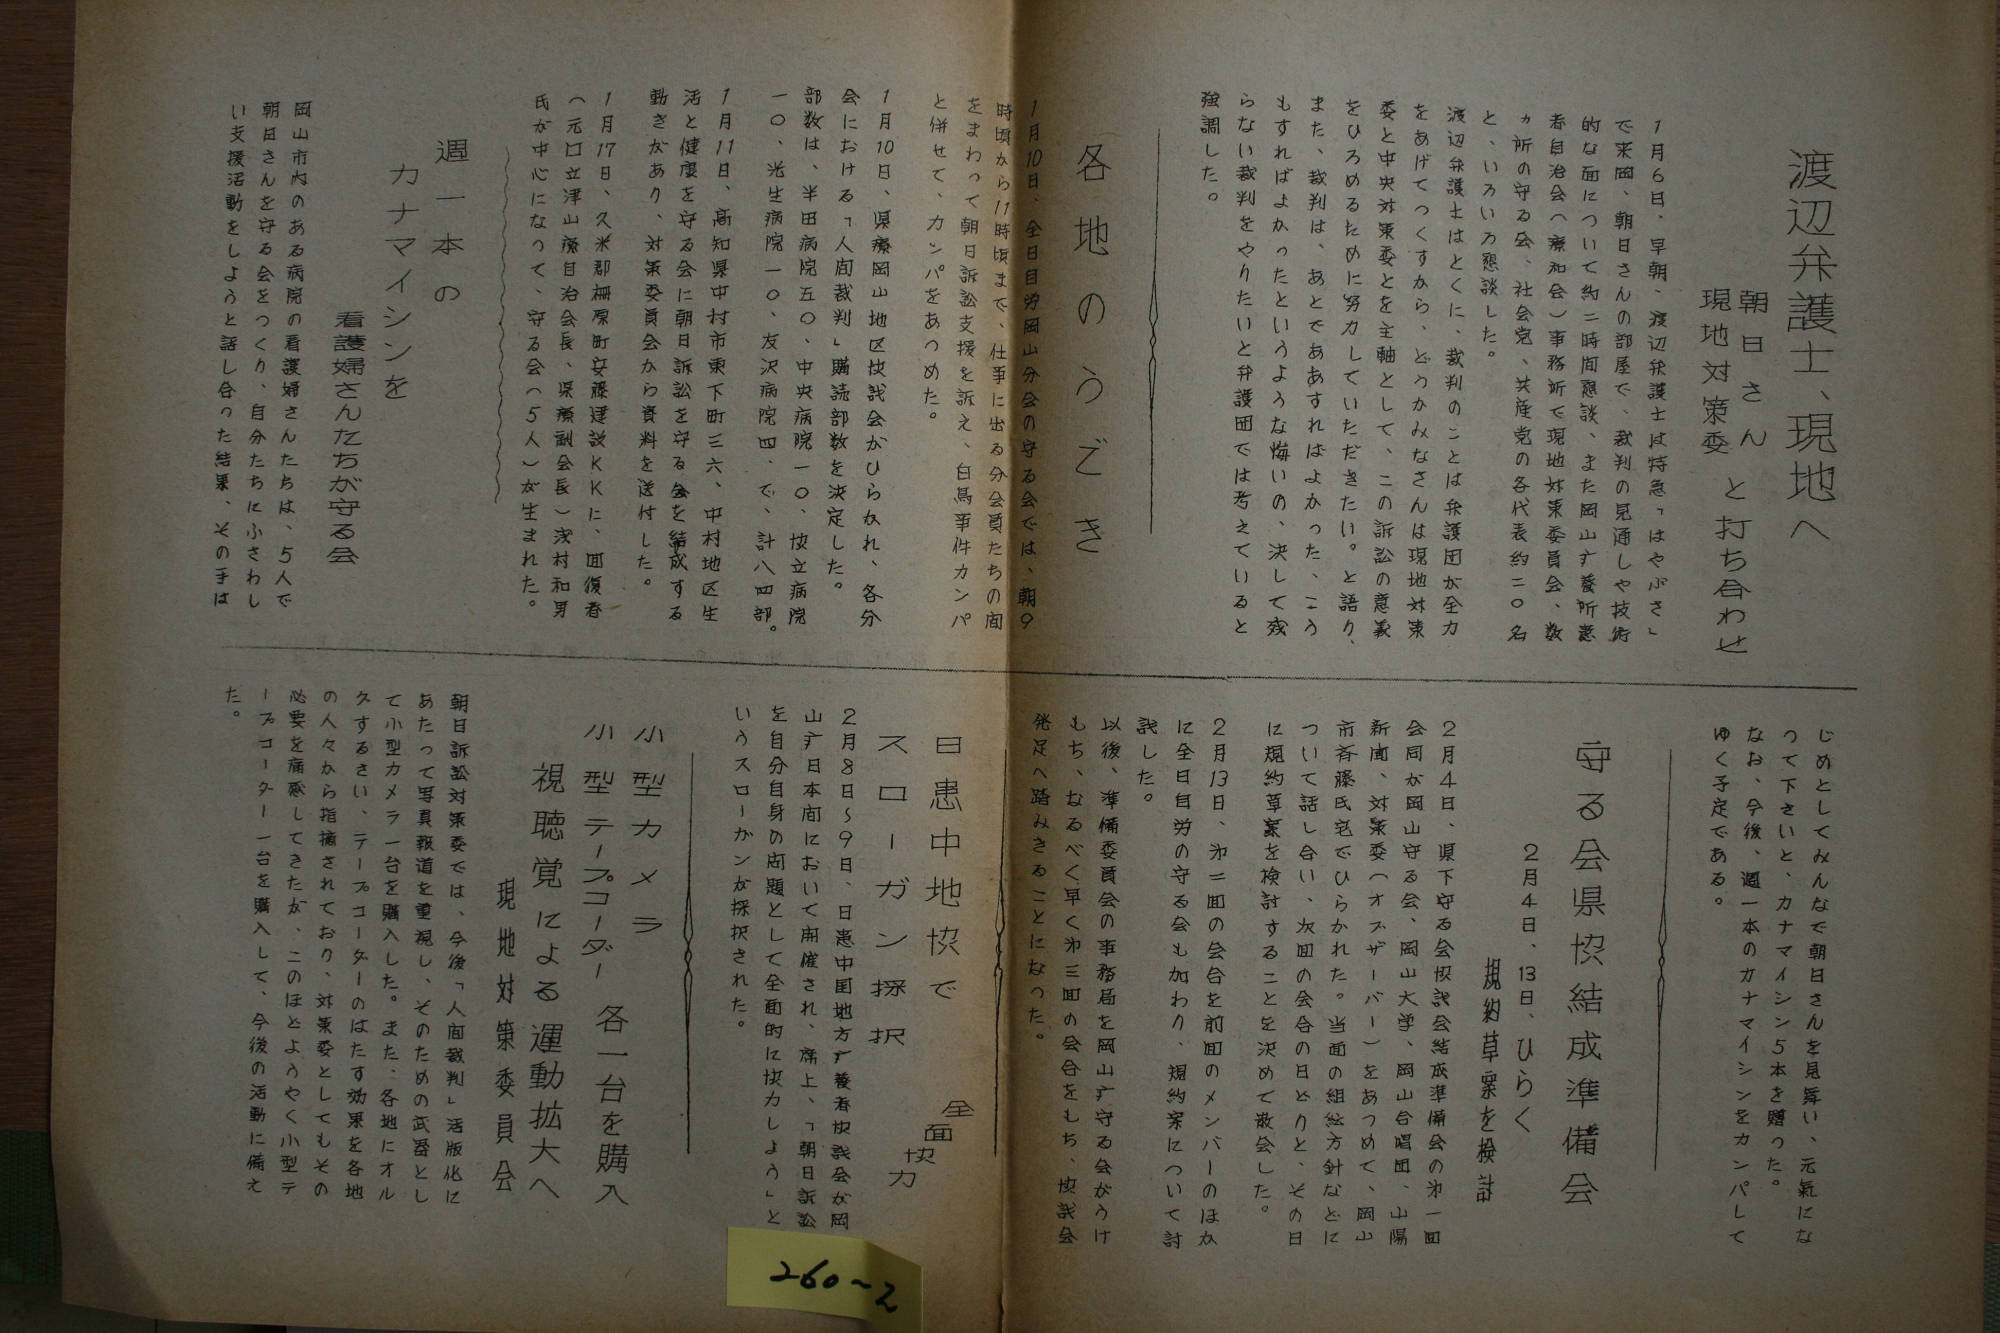 渡辺弁護士、現地へ
朝日さん
現地対策委
と打ち合わせ
1月6日、早朝、渡辺弁護士は特急「はやぶさ」
で来岡、朝日さんの部屋で、裁判の見通しや技術
的な面について約二時間懇談、また岡山疒養所患
者自治会(療和会)事務所で現地対策委員会、数
ヵ所の守る会、社会党、共産党の各代表約二〇名
と、いろいろ懇談した。
渡辺弁護士はとくに、裁判のことは弁護団が全力
をあげてつくすから、どうかみなさんは現地対策
委と中央対策委とを主軸として、この訴訟の意義
をひろめるために努力していただきたい。と語り、
また、裁判は、あとでああすればよかった、こう
もすればよかったというような悔いの、決して残
らない裁判をやりたいと弁護団では考えていると
強調した。
各地のうごき
1月10日、全日自労岡山分会の守る会では、朝9
時頃から11時頃まで、仕事に出る分会員たちの間
をまわって朝日訴訟支援を訴え、白鳥事件カンパ
と併せて、カンパをあつめた。
1月10日、県療岡山地区協議会がひらかれ、各分
会における「人間裁判」購読部数を決定した。
部数は、半田病院五〇、中央病院一〇、協立病院
一〇、光生病院一〇、友沢病院四、で、計八四部。
1月11日、高知県中村市東下町三六、中村地区生
活と健康を守る会に朝日訴訟を守る会を結成する
動きがあり、対策委員会から資料を送付した。
1月17日、久米郡柵原町安藤建設KKに、回復者
(元国立津山療自治会長、県療副会長)浅村和男
氏が中心になって、守る会(5人)が生まれた。
週一本の
カナマイシンを
看護婦さんたちが守る会
岡山市内のある病院の看護婦さんたちは、5人で
朝日さんを守る会をつくり、自分たちにふさわし
い支援活動をしようと話し合った結果、その手は
じめとしてみんなで朝日さんを見舞い、元氣にな
って下さいと、カナマイシン5本を贈った。
なお、今後、週一本のカナマイシンをカンパして
ゆく予定である。
守る会県協結成準備会
2月4日、13日、ひらく
規約草案を検討
2月4日、県下守る会協議会結成準備会の㐧一回
会同が岡山守る会、岡山大学、岡山合唱団、山陽
新聞、対策委(オブザーバー)をあつめて、岡山
市斉藤氏宅でひらかれた。当面の組織方針などに
ついて話し合い、次回の会合の日どりと、その日
に規約草案を検討することを決めて散会した。
2月13日、㐧二回の会合を前回のメンバーのほか
に全日自労の守る会も加わり、規約案について討
議した。
以後、準備委員会の事務局を岡山疒守る会がうけ
もち、なるべく早く㐧三回の会合をもち、協議会
発足へ踏みきることになった。
日患中地協で
スローガン採択
全面協力
2月8日~9日、日患中国地方疒養者協議会が岡
山疒日本間において開催され、席上、「朝日訴訟
を自分自身の問題として全面的に協力しよう」と
いうスローガンが採択された。
小型カメラ
小型テープコーダー
各一台を購入
視聴覚による運動拡大へ
現地対策委員会
朝日訴訟対策委では、今後「人間裁判」活版化に
あたって写真報道を重視し、そのための武器とし
て小型カメラ一台を購入した。また、各地にオル
久するさい、テープコーダーのはたす効果を各地
の人々から指摘されており、対策委としてもその
必要を痛感してきたが、このほどようやく小型テ
ープコーダー一台を購入して、今後の活動に備え
た。
260~2